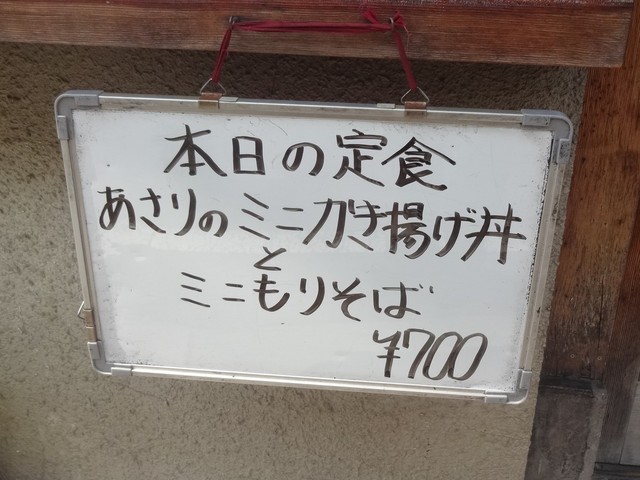 本日の定食
あさりのミニかき揚げ丼
と
ミニもりそば
¥700